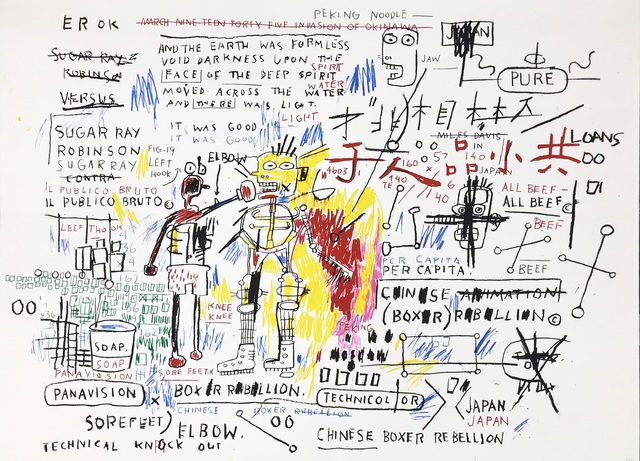 PEKING NOODLE
EROK
MARCH NINE TEEN FORTY FIVE INVASION OF OKINAWA
AND THE EARTH WAS FORMLESS
VOID DARKNESS UPON THE
FACE OF THE DEEP SPIRIT
SPIRIT
WATER
MOVED ACROSS THE WATER
AND THERE WAS LIGHT.
LIGHT
IT WAS GOOD
IT WAS GOOD
JAW
JAPAN
PURE
SUGAR RAY
ROBINSON
VERSUS
SUGAR RAY
ROBINSON
SUGAR RAY
CONTRA
IL PUBLICO BRUTO
IL PUBLICO BRUTO©
FIG.19
LEFT
HOOK
ELBOW
MILES DAVIS
人 品 小 共
LOANS
00
4603
160
57
140
140
140
JAPAN
ALL BEEF
ALL BEEF©
BEEF
BEEF
PER CAPITA
PER CAPITA
CHINESE ANIMATION
(BOXER) REBELLION©
PEKING
KNEE
KNEE
00
36
SOAP.
SOAP
PANAVISION
SORE FEET.X
PANAVISION
X
BOXER REBELLION.
TECHNICOLOR
CHINESE BOXER REBELLION
JAPAN
JAPAN
SOREFEET)
ELBOW.
00
TECHNICAL KNOCK OUT
CHINESE BOXER REBELLION